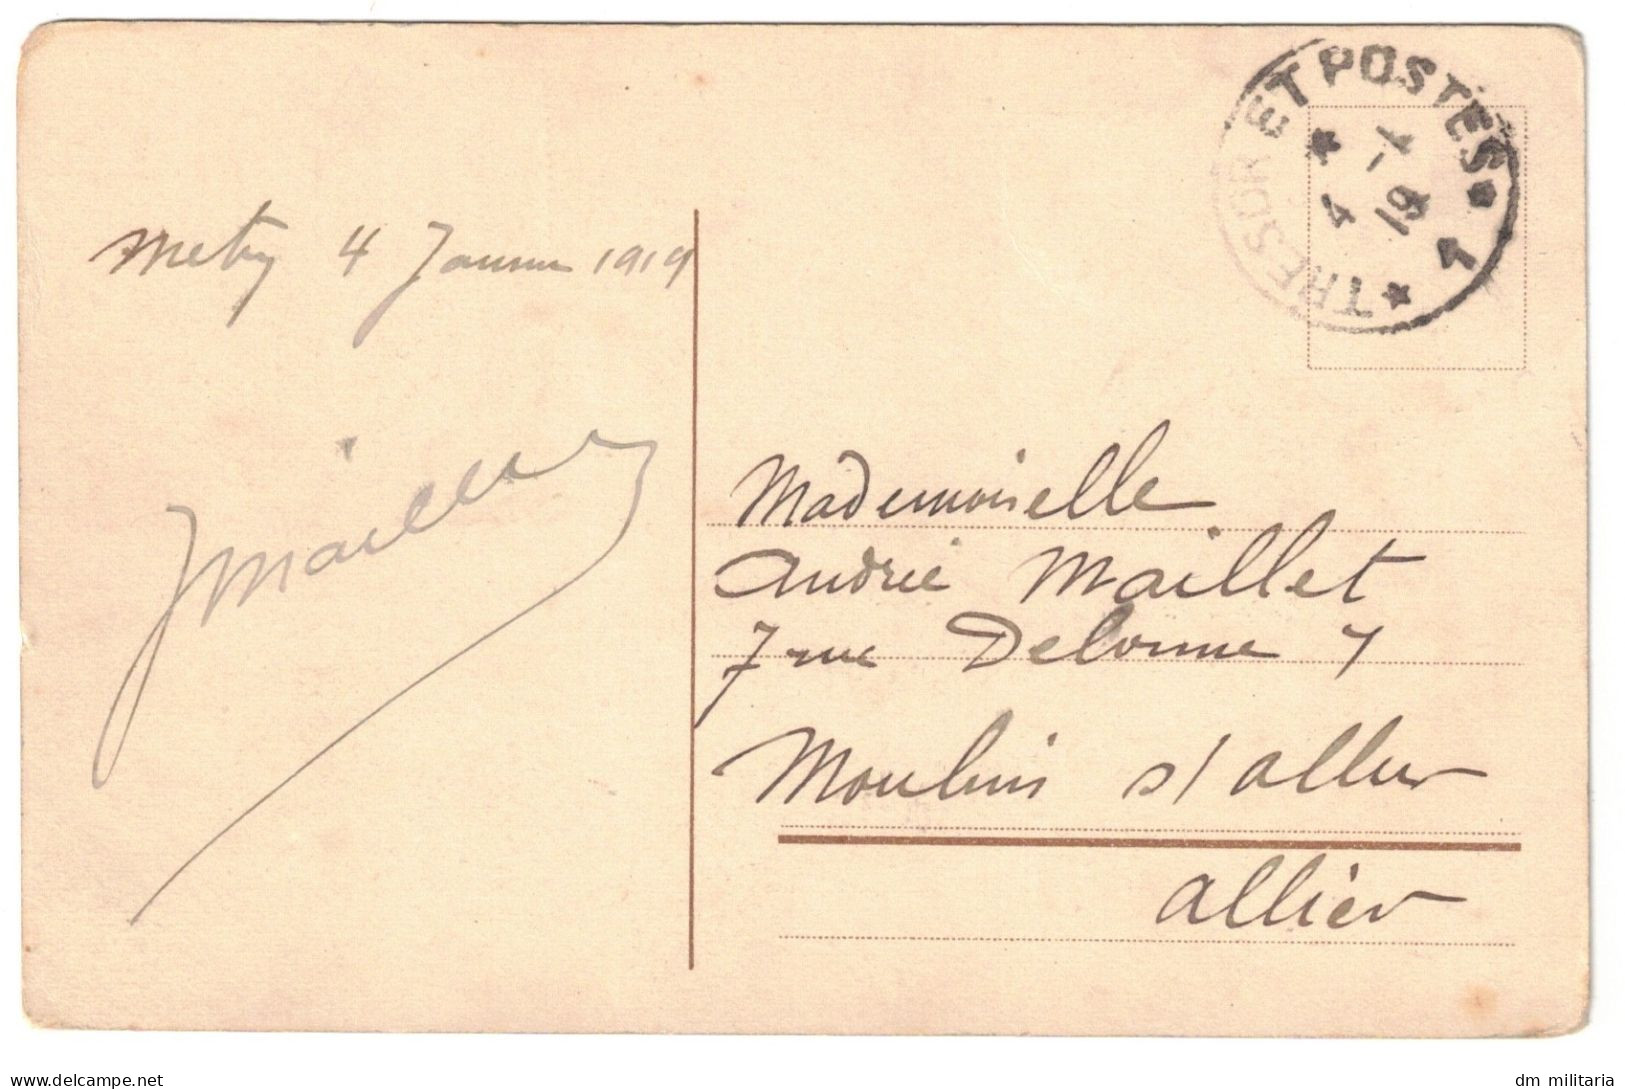 TRESOR ET POSTES
4 -1
19
Metz 4 Janvier 1919
J Maillet
Mademoiselle
Andrée Maillet
7 rue Delorme 7
Moulins s/ allier
allier
dm militaria